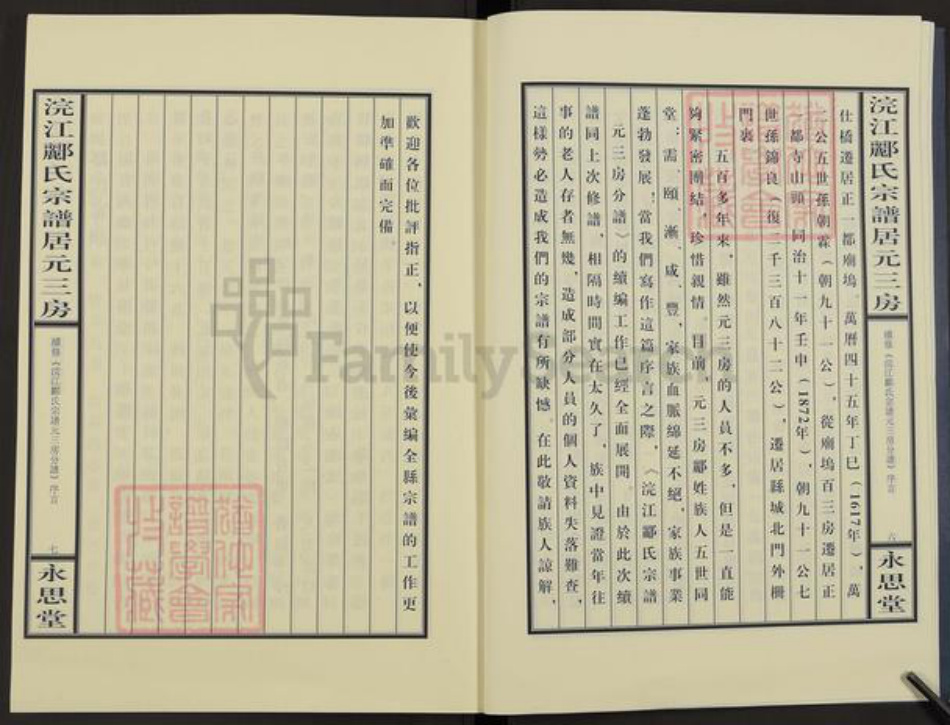 浣江酈氏宗譜居元三房
續修《浣江酈氏宗譜元三房分譜》序言
八
永思堂
仕橋遷居正一都廟塢。萬曆四十五年丁巳(1617年),萬
公五世孫朝霖(朝九十一公),從廟塢百三房遷居正
都寺山頭。同治十一年壬申(1872年),朝九十一公七
世孫錦良(復二千三百八十二公),遷居縣城北門外柵
門裏
五百多年來,雖然元三房的人員不多,但是一直能
夠緊密團結,珍惜親情。目前,元三房酈姓族人五世同
堂:需、頤、漸、咸、豐,家族血脈綿延不絕,家族事業
蓬勃發展;當我們寫作這篇序言之際,《浣江酈氏宗譜
元三房分譜》的續編工作已經全面展開。由於此次續
譜同上次修譜,相隔時間實在太久了,族中見證當年往
事的老人存者無幾,造成部分人員的個人資料失落難查,
這樣勢必造成我們的宗譜有所缺憾。在此敬請族人諒解,
歡迎各位批評指正,以便使今後彙編全縣宗譜的工作更
加準確而完備。
浣江酈氏宗譜居元三房
續修《浣江酈氏宗譜元三房分譜》序言
七
永思堂
FamilySearch